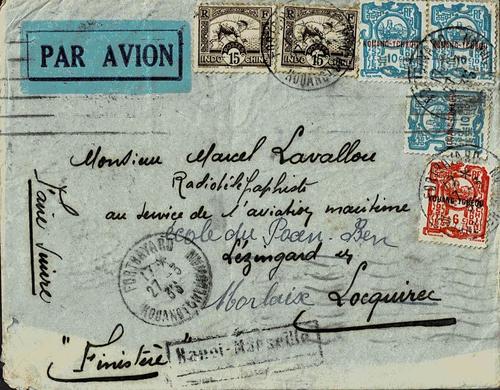 PAR AVION
RF
INDOCHINE
15
RF
INDOCHINE
15
10
KOUANG-TCHÉOU
10
KOUANG-TCHÉOU
10
6
KOUANG-TCHÉOU
Monsieur Marcel Lavallou
Radiotélégraphiste
au service de l'aviation maritime
école du
Lézingard
Morlaix Locquirec
"Finistère"
Faire suivre
FORT BAYARD
27 - 3
35
KOUANG-TCHÉOU
Hanoi-Marseille